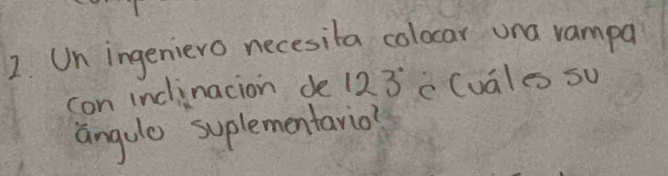 2. Un ingeniero necesita colocar una rampa
con inclinación de 123° ¿Cuál es su
ángulo suplementario?